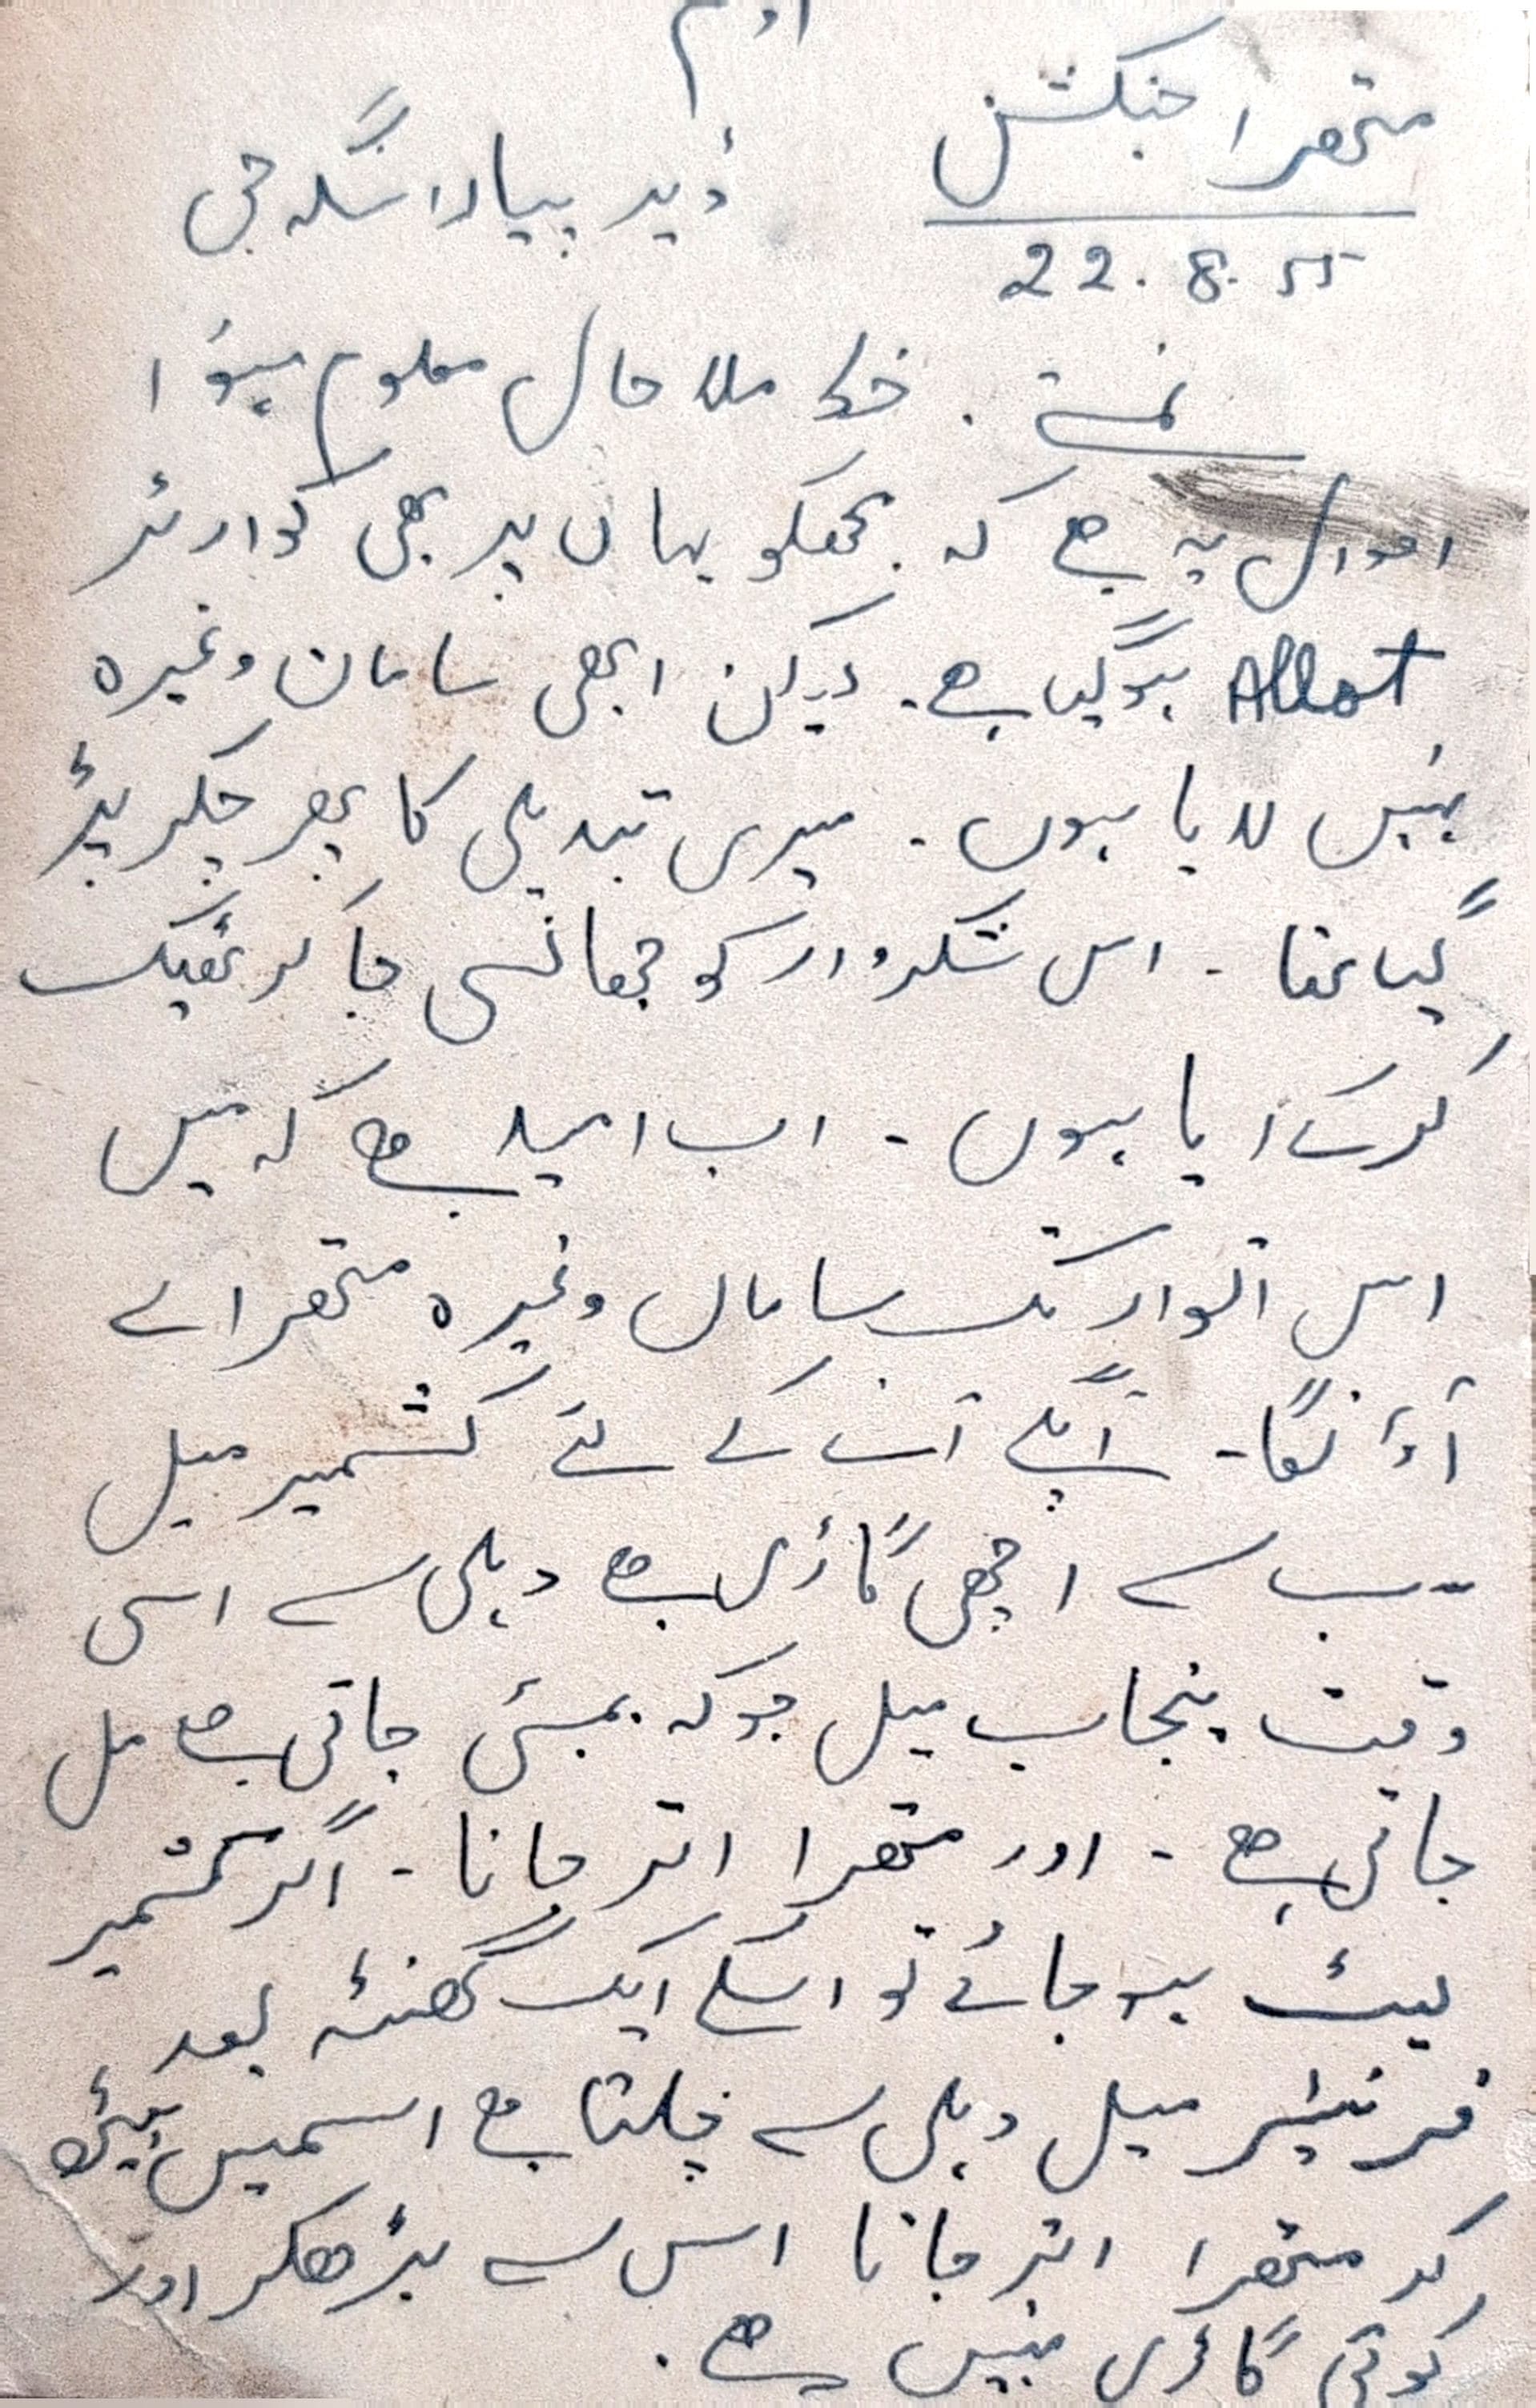 اوم
متھرا جنکشن
22.8.55
ڈیر پیارا سنگھ جی
نمستے. خط ملا حال معلوم ہوٗا
احوال یہ ہے کہ مجھکو یہاں پر بھی کوارٹر
Allot ہوگیا ہے. لیکن ابھی سامان وغیرہ
نہیں لایا ہوں. میری تبدیلی کا پھر چکر پڑ
گیا تھا - اس شکروار کو جھانسی جا کر ٹھیک
کرکے آیا ہوں - اب امید ہے کہ میں
اس اتوار تک سامان وغیرہ متھرا لے
آؤنگا - آپکے آنے کے لئے کشمیر میل
سب سے اچھی گاڑی ہے دہلی سے اسی
وقت پنجاب میل جو کہ بمبئی جاتی ہے مل
جاتی ہے - اور متھرا اتر جانا - اگر کشمیر
لیٹ ہو جائے تو اسکے ایک گھنٹہ بعد
فرنٹیر میل دہلی سے چلتا ہے اسمیں بیٹھ
کر متھرا اتر جانا اس سے بڑھکر اور
کوئی گاڑی نہیں ہے.